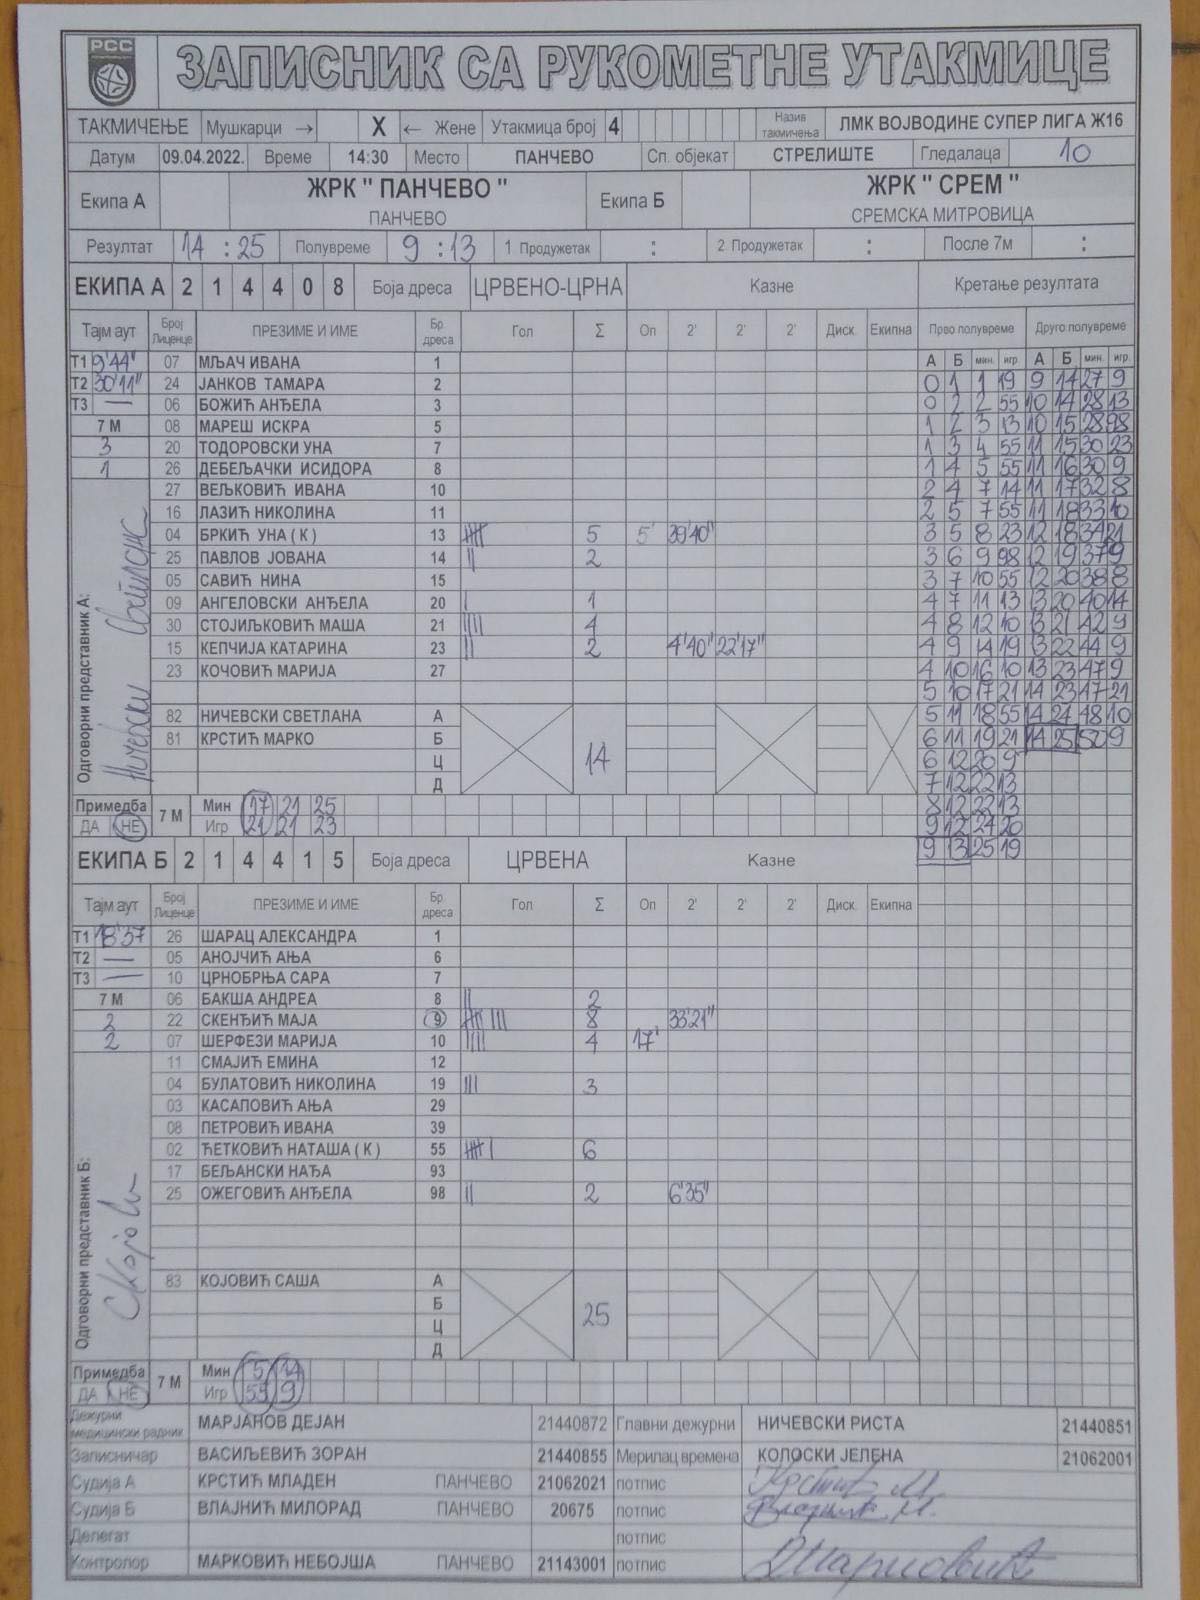 РСС
ЗАПИСНИК СА РУКОМЕТНЕ УТАКМИЦЕ
ТАКМИЧЕЊЕ Мушкарци → X ← Жене Утакмица број 4 Назив такмичења ЛМК ВОЈВОДИНЕ СУПЕР ЛИГА Ж16
Датум 09.04.2022. Време 14:30 Место ПАНЧЕВО Сп. објекат СТРЕЛИШТЕ Гледалаца 10
Екипа А ЖРК " ПАНЧЕВО " Екипа Б ЖРК " СРЕМ "
ПАНЧЕВО СРЕМСКА МИТРОВИЦА
Резултат 14 : 25 Полувреме 9 : 13 1 Продужетак : 2 Продужетак : После 7м :
ЕКИПА А 2 1 4 4 0 8 Боја дреса ЦРВЕНО-ЦРНА Казне Кретање резултата
Тајм аут Број Лиценце ПРЕЗИМЕ И ИМЕ Бр. дреса Гол Σ Оп 2' 2' 2' Диск. Екипна Прво полувреме Друго полувреме
Т1 9'44" 07 МЉАЧ ИВАНА 1 А Б мин. игр. А Б мин. игр.
Т2 30'11" 24 ЈАНКОВ ТАМАРА 2 0 1 1 19 9 14 27 9
Т3 — 06 БОЖИЋ АНЂЕЛА 3 0 2 2 55 10 14 28 13
7 М 08 МАРЕШ ИСКРА 5 1 2 3 13 10 15 28 98
3 20 ТОДОРОВСКИ УНА 7 1 3 4 55 11 15 30 23
1 26 ДЕБЕЉАЧКИ ИСИДОРА 8 1 4 5 55 11 16 30 9
27 ВЕЉКОВИЋ ИВАНА 10 2 4 7 14 11 17 32 8
16 ЛАЗИЋ НИКОЛИНА 11 2 5 7 55 11 18 33 10
04 БРКИЋ УНА ( К ) 13 5 5' 39'40" 3 5 8 23 12 18 34 21
25 ПАВЛОВ ЈОВАНА 14 2 3 6 9 98 12 19 37 9
05 САВИЋ НИНА 15 3 7 10 55 12 20 38 8
09 АНГЕЛОВСКИ АНЂЕЛА 20 1 4 7 11 13 13 20 40 14
30 СТОЈИЉКОВИЋ МАША 21 4 4 8 12 10 13 21 42 9
15 КЕПЧИЈА КАТАРИНА 23 2 4'40" 22'17" 4 9 14 19 13 22 44 9
23 КОЧОВИЋ МАРИЈА 27 4 10 16 10 13 23 47 9
5 10 17 21 14 23 47 21
82 НИЧЕВСКИ СВЕТЛАНА А 5 11 18 55 14 24 48 10
81 КРСТИЋ МАРКО Б 14 6 11 19 21 14 25 50 9
Ц 6 12 20 9
Д 7 12 22 13
Одговорни представник А: Ничевски Светлана
Примедба 7 М Мин 17 21 25 8 12 22 13
ДА НЕ Игр 21 21 23 9 12 24 20
ЕКИПА Б 2 1 4 4 1 5 Боја дреса ЦРВЕНА Казне 9 13 25 19
Тајм аут Број Лиценце ПРЕЗИМЕ И ИМЕ Бр. дреса Гол Σ Оп 2' 2' 2' Диск. Екипна
Т1 18'37 26 ШАРАЦ АЛЕКСАНДРА 1
Т2 — 05 АНОЈЧИЋ АЊА 6
Т3 — 10 ЦРНОБРЊА САРА 7
7 М 06 БАКША АНДРЕА 8 2
2 22 СКЕНЂИЋ МАЈА 9 8 33'21"
2 07 ШЕРФЕЗИ МАРИЈА 10 4 17'
11 СМАЈИЋ ЕМИНА 12
04 БУЛАТОВИЋ НИКОЛИНА 19 3
03 КАСАПОВИЋ АЊА 29
08 ПЕТРОВИЋ ИВАНА 39
02 ЋЕТКОВИЋ НАТАША ( К ) 55 6
17 БЕЉАНСКИ НАЂА 93
25 ОЖЕГОВИЋ АНЂЕЛА 98 2 6'35"
83 КОЈОВИЋ САША А
Б 25
Ц
Д
Одговорни представник Б:
Примедба 7 М Мин 5 34
ДА НЕ Игр 55 9
Дежурни медицински радник МАРЈАНОВ ДЕЈАН 21440872 Главни дежурни НИЧЕВСКИ РИСТА 21440851
Записничар ВАСИЉЕВИЋ ЗОРАН 21440855 Мерилац времена КОЛОСКИ ЈЕЛЕНА 21062001
Судија А КРСТИЋ МЛАДЕН ПАНЧЕВО 21062021 потпис Крстић М.
Судија Б ВЛАЈНИЋ МИЛОРАД ПАНЧЕВО 20675 потпис
Делегат потпис
Контролор МАРКОВИЋ НЕБОЈША ПАНЧЕВО 21143001 потпис